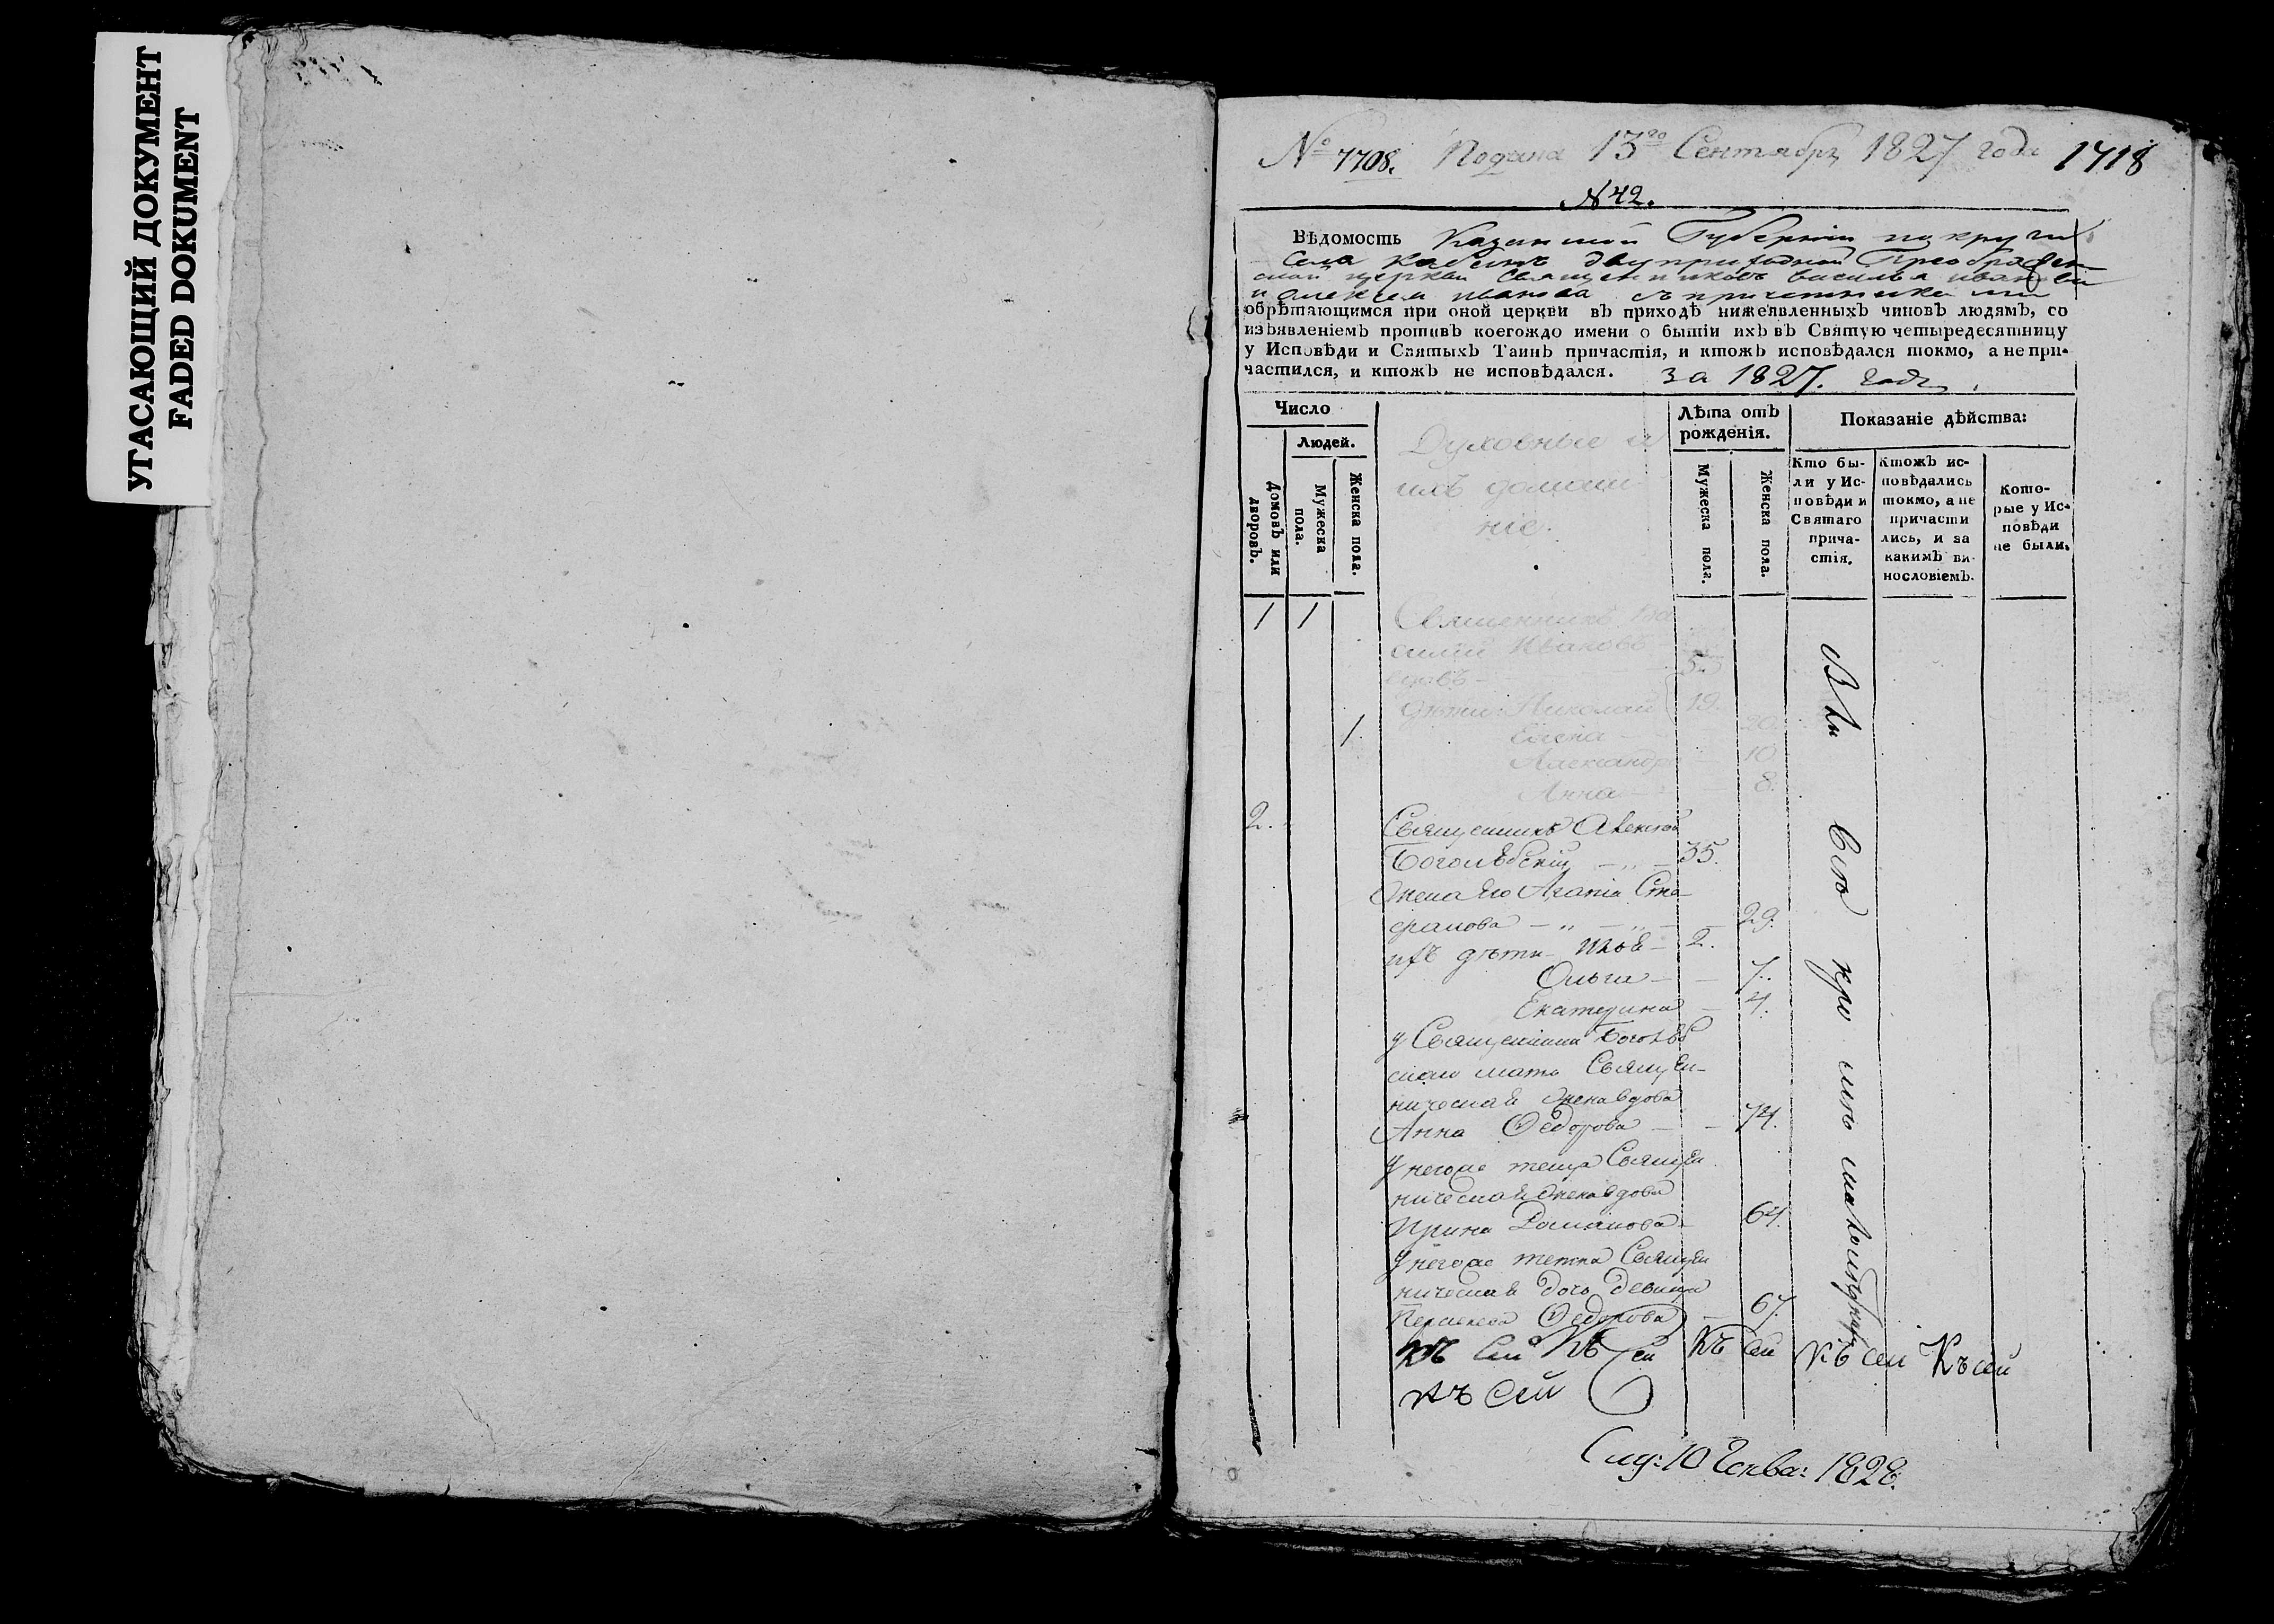 УГАСАЮЩИЙ ДОКУМЕНТ
FADED DOKUMENT
№ 7708. Подана 13го Сентября 1827 года 1718
№ 42.
Вѣдомость Казанской Губерніи
Села двуприходной Преображен
ской церкви Священниковъ Василья Иванова
и Алексея Иванова съ причетниками
обрѣтающимся при оной церкви въ приходѣ нижеявленныхъ чиновъ людямъ, со
изъявленіемъ противъ коегождо имени о бытіи ихъ въ Святую четыредесятницу
у Исповѣди и Святыхъ Таинъ причастія, и ктожъ исповѣдался токмо, а не при-
частился, и ктожъ не исповѣдался. за 1827. годъ
Число
Людей.
Домовъ или дворовъ.
Мужеска пола.
Женска пола.
Духовные и
ихъ домаш
ніе.
Лѣта отъ
рожденія.
Мужеска пола.
Женска пола.
Показаніе дѣйства:
Кто бы-
ли у Ис-
повѣди и
Святаго
прича-
стія.
Ктожъ ис-
повѣдались
токмо, а не
причасти
лись, и за
какимъ ви-
нословіемъ.
Кото-
рые у Ис-
повѣди
не были.
1 1 Священникъ Ва
силій Ивановъ
вдовъ
дѣти: Николай 19.
1. Елена 20.
Александра 10
Анна 8.
2. Священникъ Алексей
Боголѣбскій 35.
Жена его Агапія Сте
фанова 29.
ихъ дѣти 2.
Ольга 7.
Екатерина 4.
у Священника Боголѣб
скаго мать Священ-
ническая жена вдова
Анна Ѳедорова 74.
у негоже теща Священ
ническая жена вдова
Ирина 64.
у негоже тетка Священ
ническая дочь девица
Ѳедорова 67.
Къ сей Къ сей Къ сей Къ сей Къ сей
Къ сей
10 Генва: 1828.